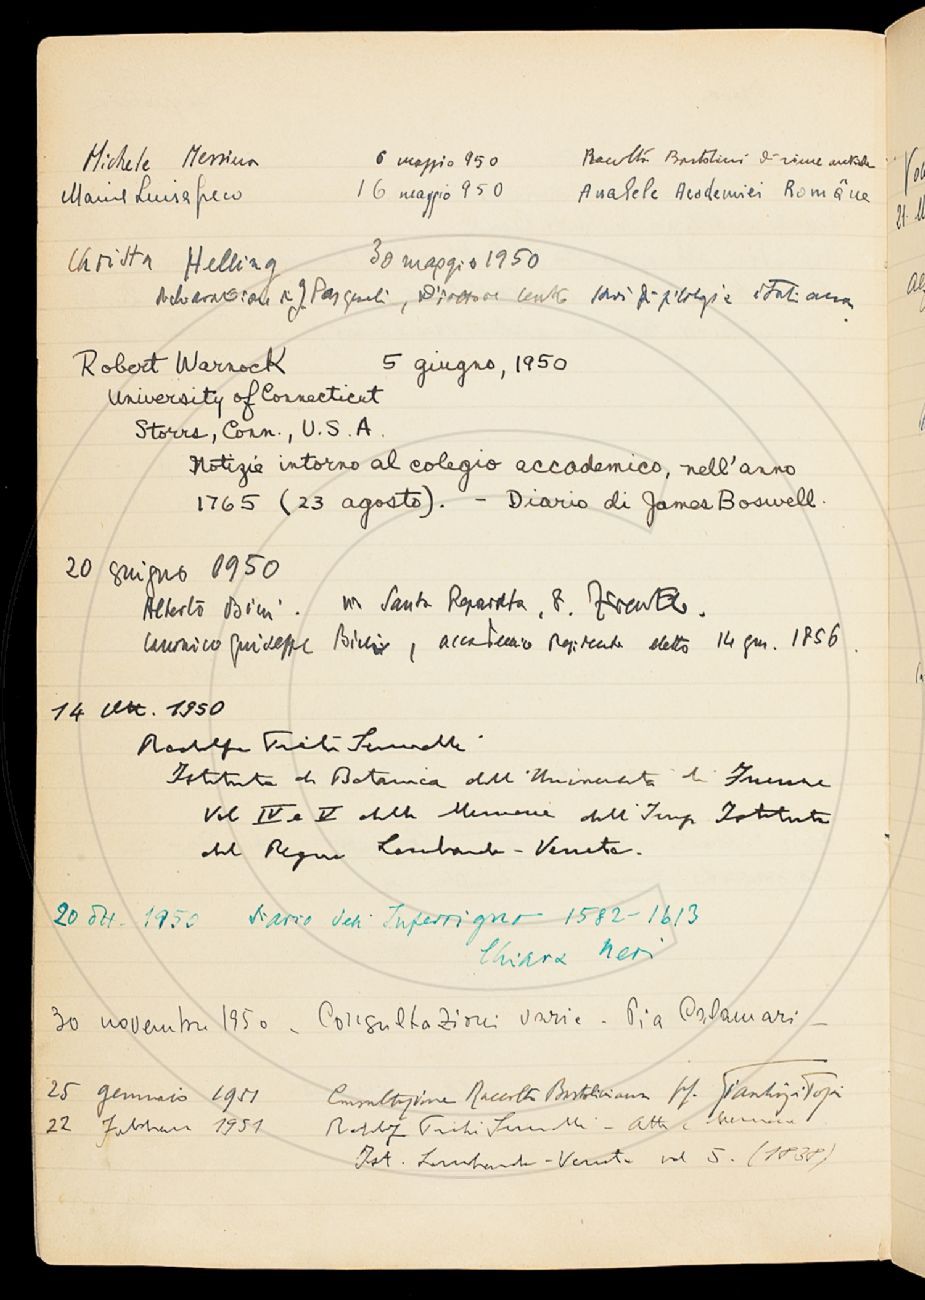 Michele Messina 6 maggio 950 Raccolta Bartolini di rime
Maria Luisa 16 maggio 950 Analele Academiei Române
Christa Helling 30 maggio 1950
Pasquali, Direttore Centro studi di filologia italiana
Robert Warnock 5 giugno, 1950
University of Connecticut
Storrs, Conn., U.S.A.
Notizie intorno al colegio accademico, nell'anno
1765 (23 agosto). - Diario di James Boswell.
20 giugno 1950
Alberto Bini. via Santa Reparata, 8. Firenze.
Canonico Giuseppe Bini, accademico residente eletto 14 gen. 1856.
14 Ott. 1950
Rodolfo
Istituto di Botanica dell'Università di Firenze
Vol IV e V delle Memorie dell'Imp. Istituto
del Regno Lombardo-Veneto.
20 ott. 1950 Diario dell'Inferrigno 1582-1613
Chiara Neri
30 novembre 1950 - Consultazioni varie - Pia Calamari -
25 gennaio 1951 Consultazione Raccolta Bartoliniana
22 Febbraio 1951 Rodolfo - Atti e Memorie
Ist. Lombardo-Veneto vol 5. (1838)